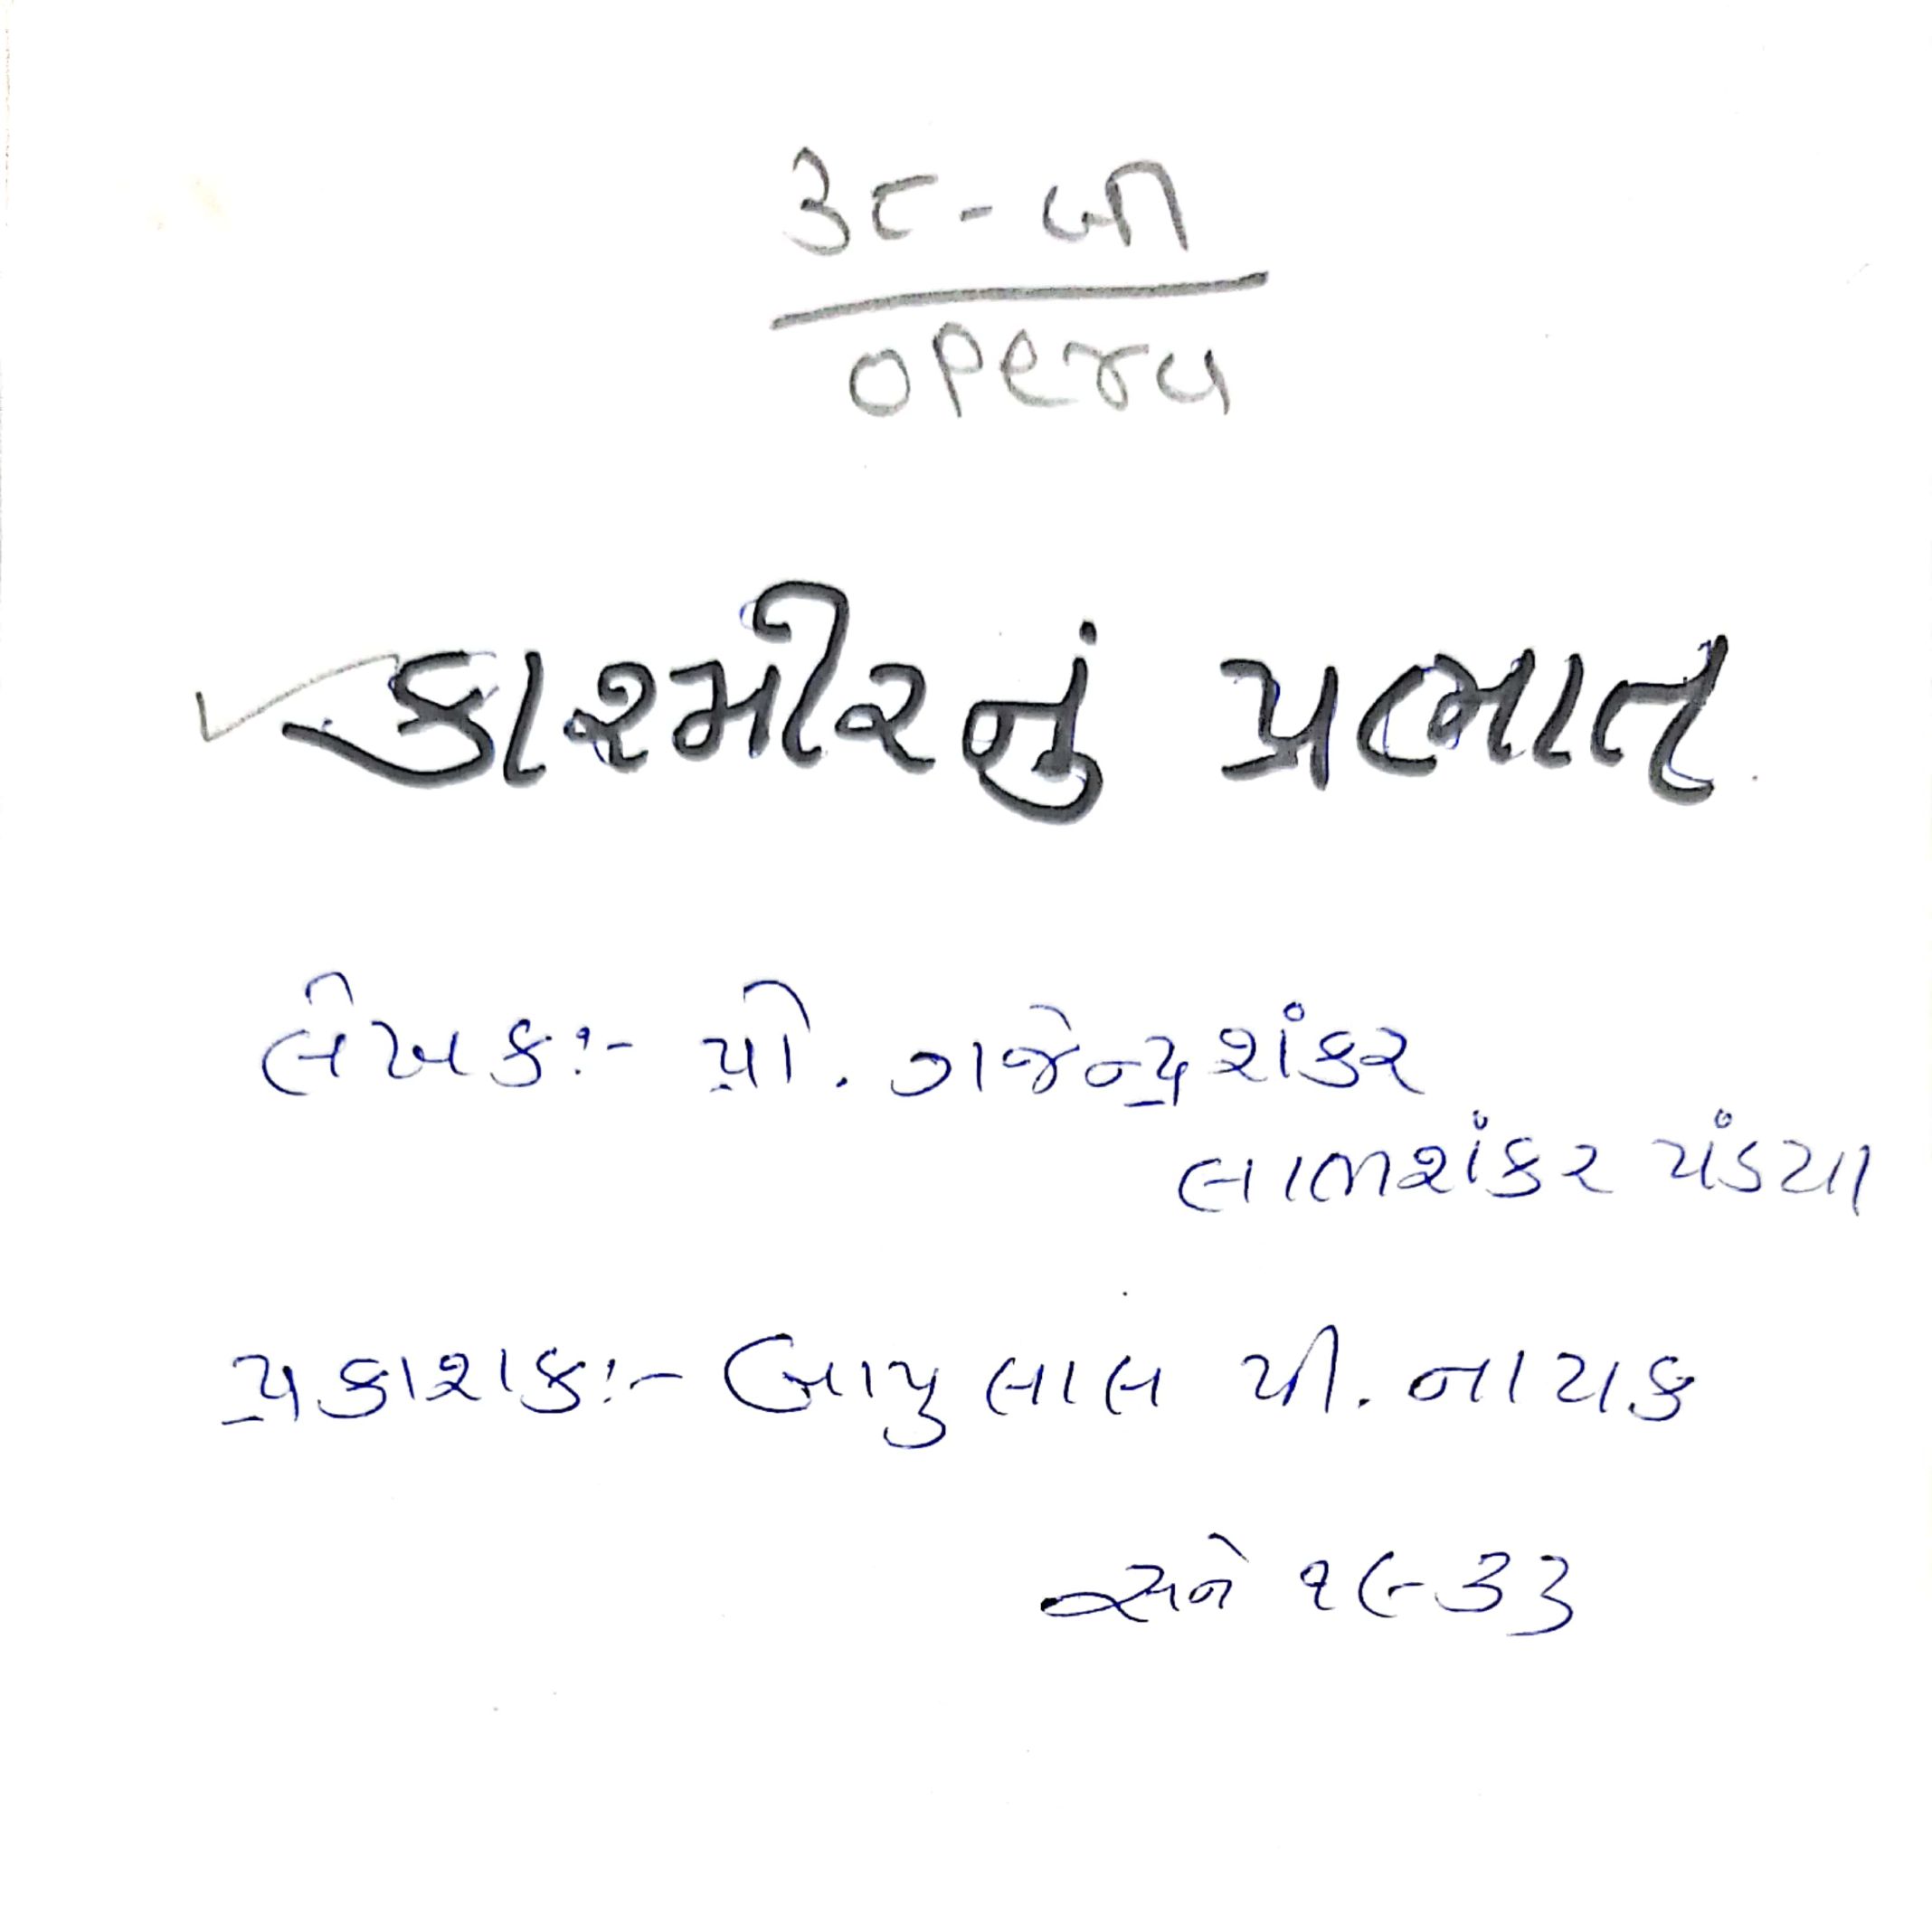 ૩૮-બી
opera
કાશ્મીરનું પ્રભાત
લેખક:- પ્રો. ગજેન્દ્રશંકર
લાભશંકર પંડયા
પ્રકાશક:- બાપુલાલ પી. નાયક
સને ૧૯૩૩